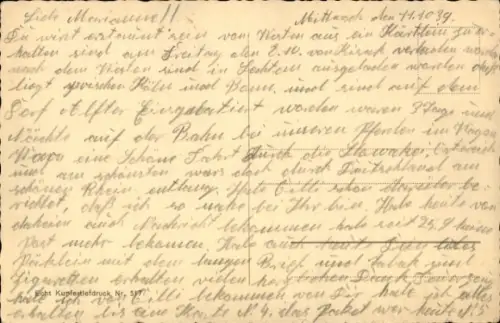 Liebe Marianne!! Mittwoch den 11.10 39.
Du wirst erstaunt sein vom Westen aus ein Kärtlein zu er-
halten sind am Freitag den 2.10. von verladen worden
nach dem Westen sind in Sechtem ausgeladen worden das
liegt zwischen Köln und Bonn, und sind auf dem
Dorf Alfter Einquartiert worden waren 3 Tage und
Nächte auf der Bahn bei unseren Pferden im Wagen
eine Schöne Fahrt durch die Slowakei,
und am schönsten wars doch durch Deutschland am
schönen Rhein entlang. Habe Cilli schon darüber be-
richtet, daß ich so nahe bei Ihr bin. Habe heute von
daheim auch Nachricht bekommen habe seit 25.9 keine
Post mehr bekommen. Habe auch heute Dein liebes
Päcklein mit dem langen Brief und Tabak und
Zigaretten erhalten vielen herzlichen Dank
habe ich von Cilli bekommen von Dir habe ich alles
erhalten bis eine Karte N 4. das Paket war heute N 5
Echt Kupfertiefdruck Nr. 517